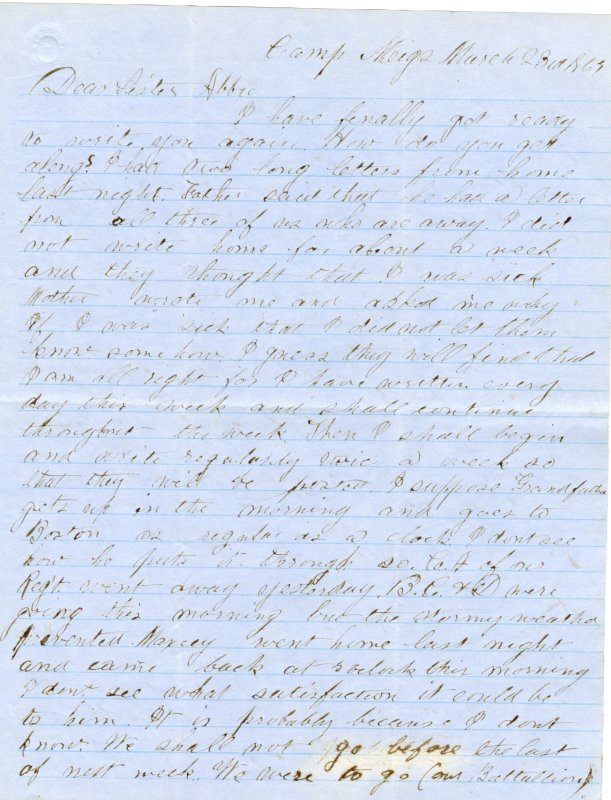 Camp Meigs March 23rd 1864
Dear Sister Abbie
I have finally got ready
to write you again. How do you get
along? I had two long letters from home
last night. Father said that he had a letter
from all three of us who are away. I did
not write home for about a week
and they thought that I was sick
Mother wrote me and asked me why
if I was sick that I did not let them
know somehow I guess they will find that
I am all right for I have written every
day this week and shall continue
throughout the week Then I shall begin
and write regularly twice a week so
that they will be . I suppose Grandfather
gets up in the morning and goes to
Boston as regular as a clock. I dont see
how he puts it through so. Co. A of our
Regt. went away yesterday. B. C. & D were
going this morning but the stormy weather
prevented went home last night
and came back at oclock this morning
I dont see what satisfaction it could be
to him. It is probably because I dont
know. We shall not go before the last
of next week. We were to go (our Battallion)